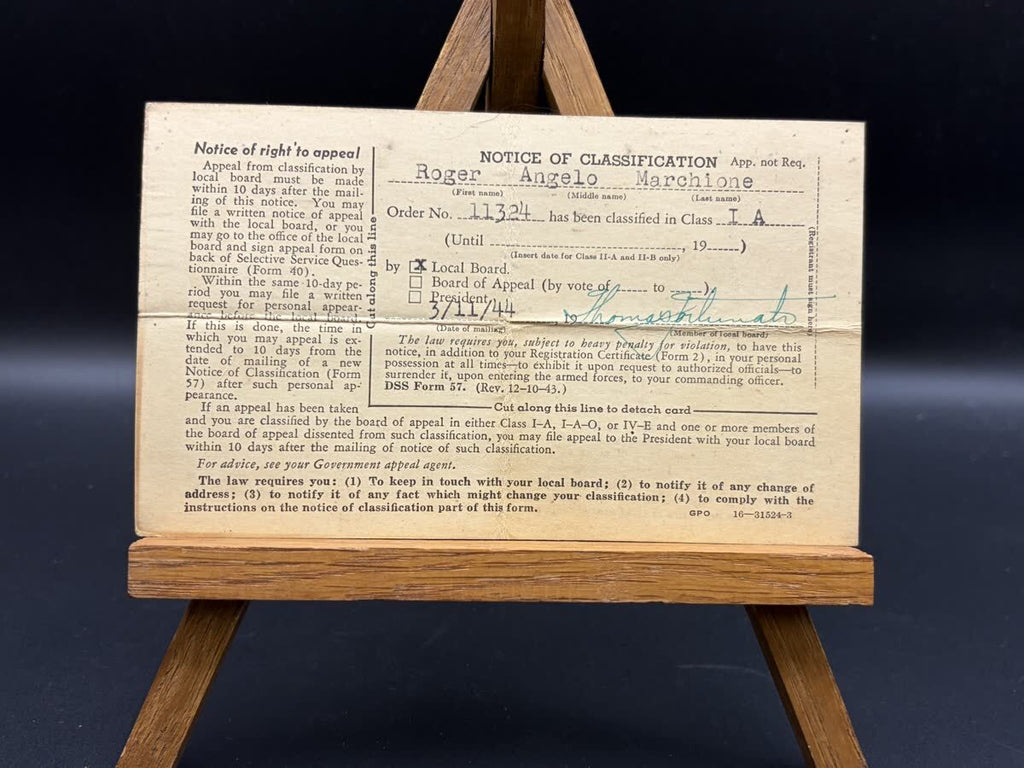 Notice of right to appeal
Appeal from classification by
local board must be made
within 10 days after the mail-
ing of this notice. You may
file a written notice of appeal
with the local board, or you
may go to the office of the local
board and sign appeal form on
back of Selective Service Ques-
tionnaire (Form 40).
Within the same 10-day pe-
riod you may file a written
request for personal appear-
ance before the local board.
If this is done, the time in
which you may appeal is ex-
tended to 10 days from the
date of mailing of a new
Notice of Classification (Form
57) after such personal ap-
pearance.
Cut along this line
NOTICE OF CLASSIFICATION App. not Req.
Roger Angelo Marchione
(First name) (Middle name) (Last name)
Order No. 11324 has been classified in Class I A
(Until , 19 )
(Insert date for Class II-A and II-B only)
by X Local Board.
Board of Appeal (by vote of to )
President
3/11/44 Thomas
(Date of mailing) (Member of local board)
The law requires you, subject to heavy penalty for violation, to have this
notice, in addition to your Registration Certificate (Form 2), in your personal
possession at all times—to exhibit it upon request to authorized officials—to
surrender it, upon entering the armed forces, to your commanding officer.
DSS Form 57. (Rev. 12-10-43.)
(Registrant must sign here)
Cut along this line to detach card
If an appeal has been taken
and you are classified by the board of appeal in either Class I-A, I-A-O, or IV-E and one or more members of
the board of appeal dissented from such classification, you may file appeal to the President with your local board
within 10 days after the mailing of notice of such classification.
For advice, see your Government appeal agent.
The law requires you: (1) To keep in touch with your local board; (2) to notify it of any change of
address; (3) to notify it of any fact which might change your classification; (4) to comply with the
instructions on the notice of classification part of this form.
GPO 16—31524-3